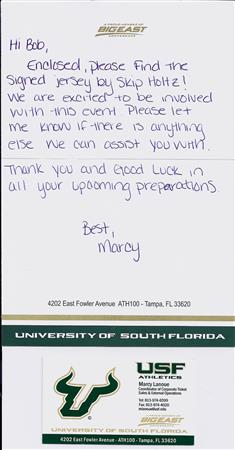 A PROUD MEMBER OF
BIG EAST
CONFERENCE
Hi Bob,
Enclosed, please find the
signed jersey by Skip Holtz!
We are excited to be involved
with this event. Please let
me know if there is anything
else we can assist you with.
Thank you and Good Luck in
all your upcoming preparations.
Best,
Marcy
4202 East Fowler Avenue ATH100 - Tampa, FL 33620
UNIVERSITY OF SOUTH FLORIDA
USF
ATHLETICS
Marcy Lanoue
Coordinator of Corporate Ticket
Sales & External Operations
BIG EAST
UNIVERSITY OF SOUTH FLORIDA
4202 East Fowler Avenue - ATH100 - Tampa, FL 33620